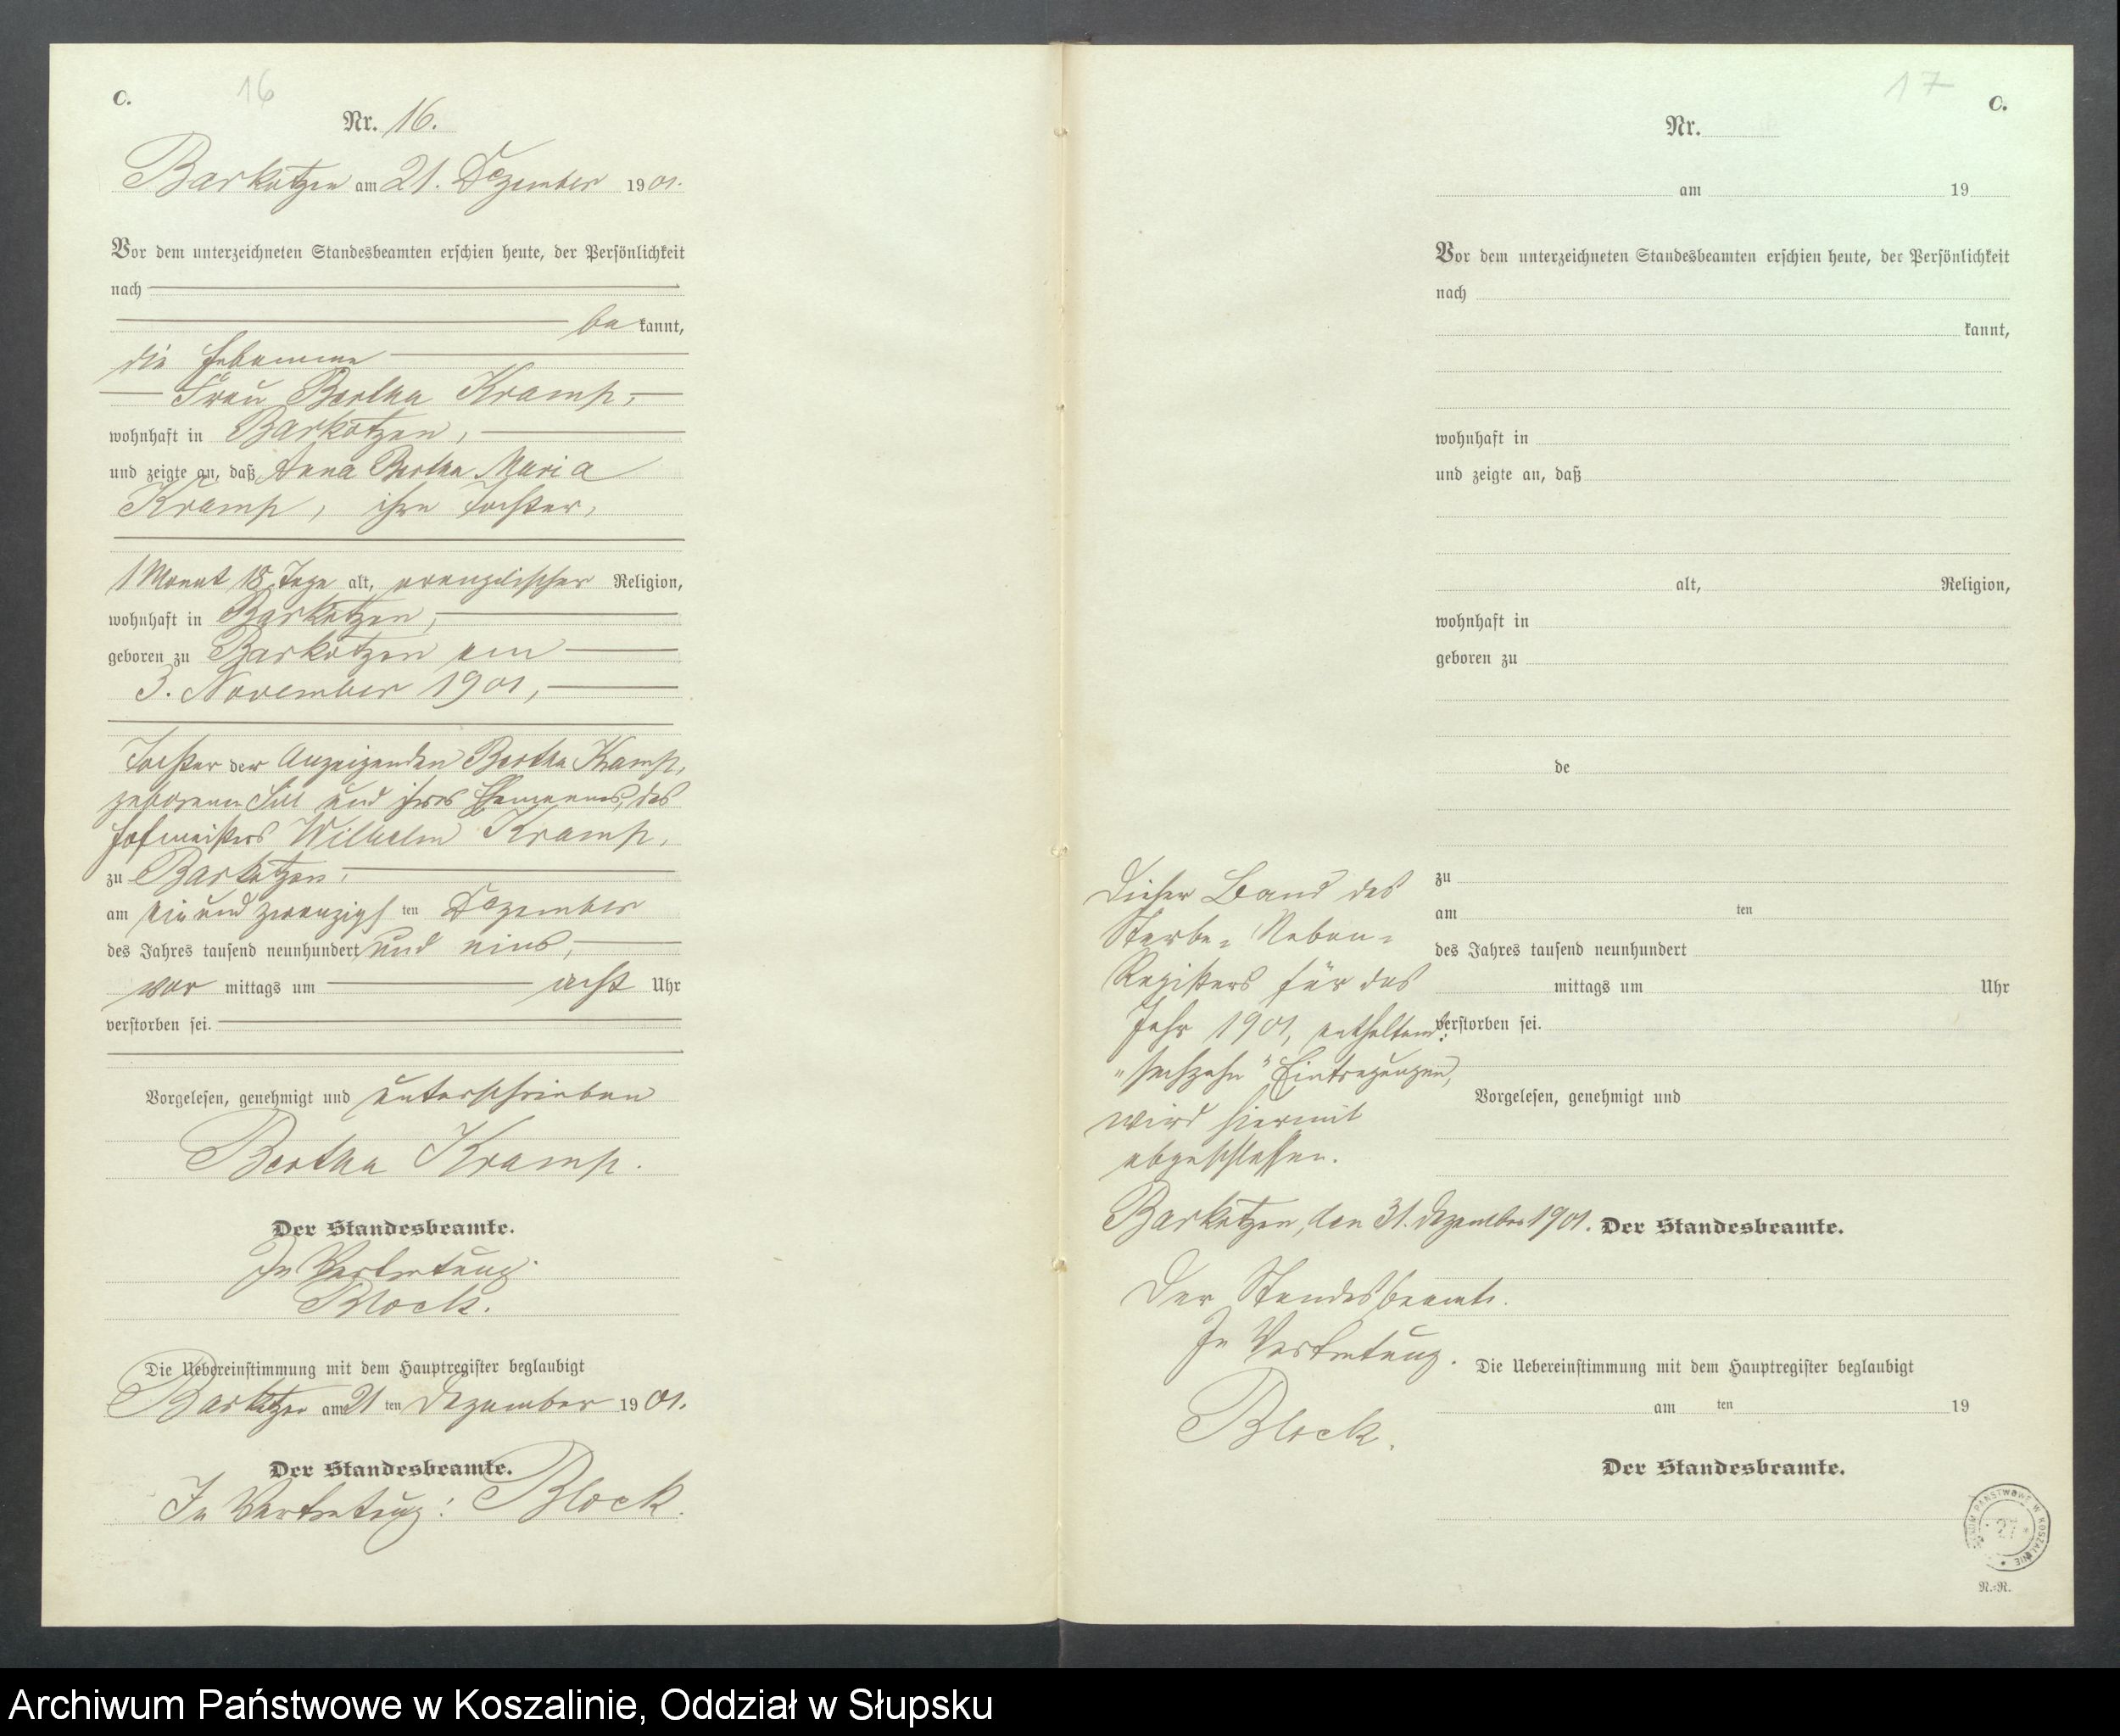 C.
16
Nr. 16.
Barkotzen am 21. Dezember 1901.
Vor dem unterzeichneten Standesbeamten erschien heute, der Persönlichkeit
nach
be kannt,
die Hebamme
Frau Bertha Kramp,
wohnhaft in Barkotzen,
und zeigte an, daß Anna Bertha Maria
Kramp, ihre Tochter,
1 Monat 18 Tage alt, evangelischer Religion,
wohnhaft in Barkotzen,
geboren zu Barkotzen am
3. November 1901,
Tochter der Anzeigenden Bertha Kramp,
geborenen und ihres Ehemannes, des
Hofmeisters Wilhelm Kramp,
zu Barkotzen,
am ein und zwanzigsten Dezember
des Jahres tausend neunhundert und eins,
vor mittags um acht Uhr
verstorben sei.
Vorgelesen, genehmigt und unterschrieben
Bertha Kramp.
Der Standesbeamte.
In Vertretung.
Block.
Die Uebereinstimmung mit dem Hauptregister beglaubigt
Barkotzen am 21 ten Dezember 1901.
Der Standesbeamte.
In Vertretung: Block.
17
C.
Nr.
am 19
Vor dem unterzeichneten Standesbeamten erschien heute, der Persönlichkeit
nach
kannt,
wohnhaft in
und zeigte an, daß
alt, Religion,
wohnhaft in
geboren zu
de
zu
am ten
des Jahres tausend neunhundert
mittags um Uhr
verstorben sei.
Vorgelesen, genehmigt und
Der Standesbeamte.
Die Uebereinstimmung mit dem Hauptregister beglaubigt
am ten 19
Der Standesbeamte.
Dieser Band des
Sterbe-Neben-
Registers für das
Jahr 1901, enthaltend:
"sechzehn" Eintragungen,
wird hiermit
abgeschlossen.
Barkotzen, den 31. Dezember 1901.
Der Standesbeamte.
In Vertretung.
Block.
PAŃSTWOWE W KOSZALINIE
27
N.-R.
Archiwum Państwowe w Koszalinie, Oddział w Słupsku